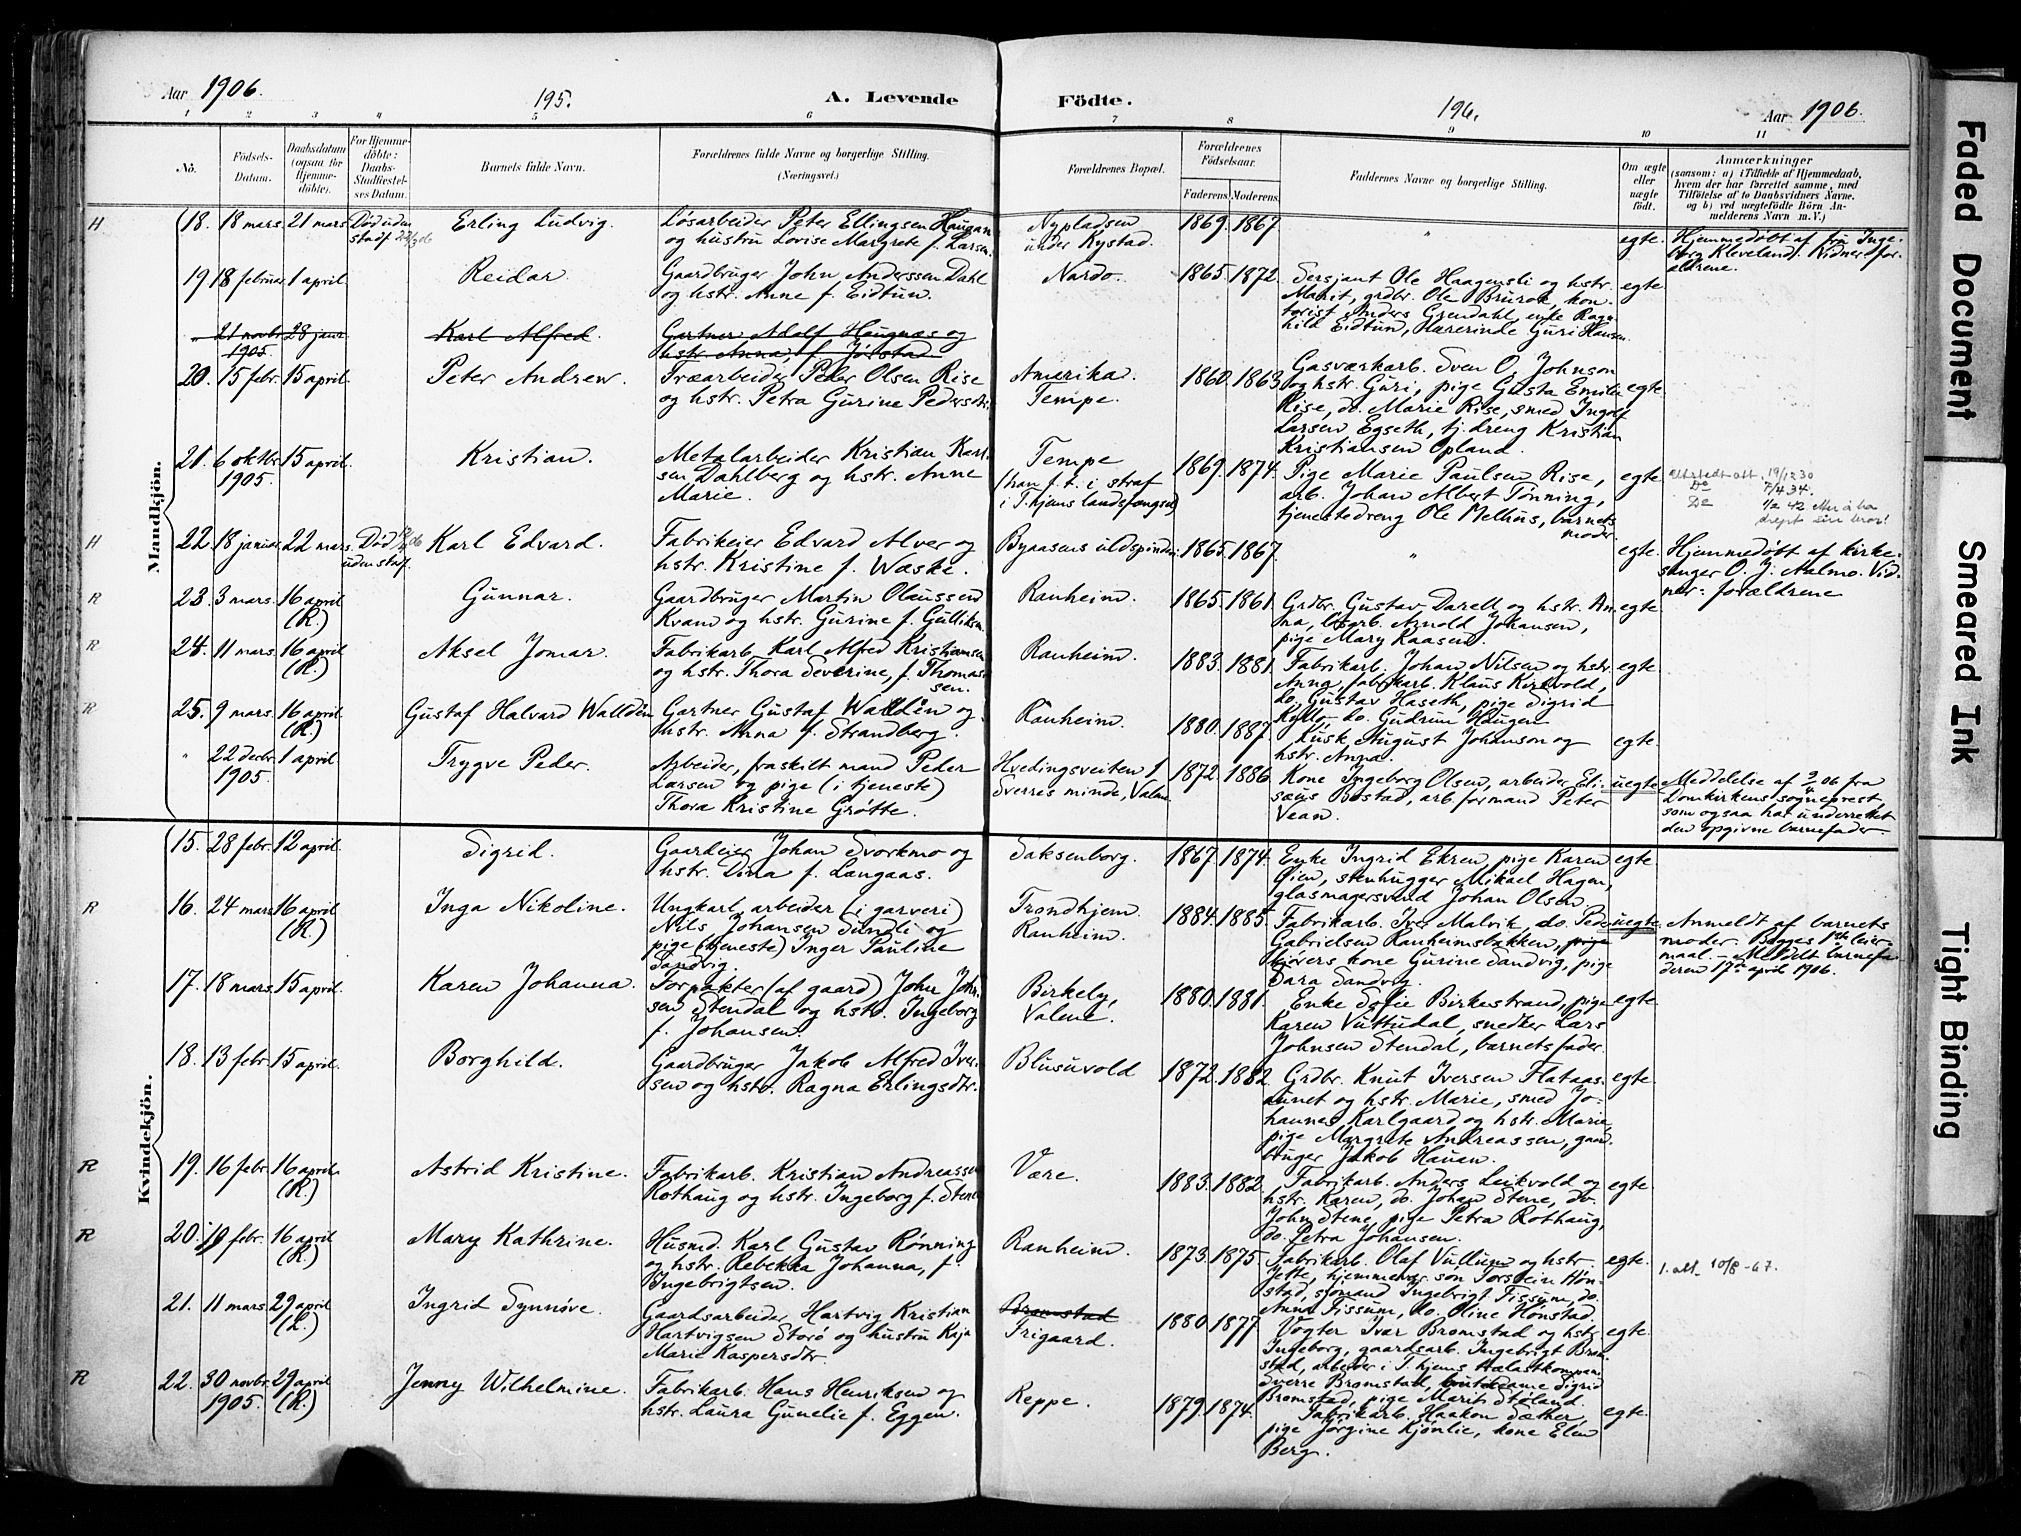 Aar 1906. 195. A. Levende Födte. 196. Aar 1906.
1 2 3 4 5 6 7 8 9 10 11
No.
Födsels-
Datum.
Daabsdatum
(ogsaa for
Hjemme-
døbte).
For Hjemme-
døbte:
Daabs-
Stadfæstel-
ses Datum.
Barnets fulde Navn.
Forældrenes fulde Navne og borgerlige Stilling.
(Næringsvei.)
Forældrenes Bopæl.
Forældrenes
Födselsaar.
Faderens. Moderens.
Faddernes Navne og borgerlige Stilling.
Om ægte
eller
uægte
født.
Anmærkninger
(saasom: a) i Tilfælde af Hjemmedaab,
hvem der har forrettet samme, med
Tilføielse af to Daabsvidners Navne.
og b) ved uægtefødte Börn An-
melderens Navn m. V.)
Mandkjön.
H 18. 18 mars 21 mars Død uden
stadf.
Erling Ludvig.
Løsarbeider Peter Ellingsen Haugan
og hustru Lovise Margrete f. Larsen.
Nypladsen
under Kystad.
1869. 1867.
"
egte.
Hjemmedøbt af fru Inge-
borg Kleveland. Vidner: for-
ældrene.
19 18 februar 1 april.
Reidar.
Gaardbruger John Anderssen Dahl
og hstr. Anne f. Eidtun.
Nardo.
1865. 1872.
Sersjant Ole Haagenski og hstr.
Marit, grdbr. Ole Brurok, kon-
torist Anders Grendahl, enke Ragn-
hild Eidtun, Lærerinde Guri Hansen.
egte.
" 21 novbr. 28 janr.
1905.
Karl Alfred.
Gartner Adolf Haugnæs og
hstr. Anna, f. Jørstad
20. 15 febr. 15 april.
Peter Andrew.
Træarbeider Peder Olsen Rise
og hstr. Petra Gurine Pedersdtr.
Amerika.
Tempe.
1860. 1863
Gasværkarb. Sven O. Johnson
og hstr. Guri, pige Gusta Emilie
Rise, do. Marie Rise, smed Ingolf
Larsen Egseth, tj.dreng Kristian
Kristiansen Opland.
egte.
21. 6 oktbr. 15 april.
1905.
Kristian.
Metalarbeider Kristian Karl-
sen Dahlberg og hstr. Anne
Marie.
Tempe
(han f.t. i straf
i T.hjems landsfængsel)
1869. 1874.
Pige Marie Paulsen Rise,
arb. Johan Albert Tønning,
tjenestedreng Ole Melhus, barnets
moder.
egte.
19/12 30
De 7/4 34.
De 1/2 42 etter å ha
drept sin bror!
H 22. 18 januar 22 mars. Død
uden stadf.
Karl Edvard.
Fabrikeier Edvard Alver og
hstr. Kristine f. Waske.
Byaasens uldspinderi
1865. 1867.
"
egte.
Hjemmedøbt af kirke-
sanger O. J. Aalmo. Vid-
ner: forældrene
R 23. 3 mars. 16 april
(R.)
Gunnar.
Gaardbruger Martin Olaussen
Kvam og hstr. Gurine f. Gulliksen.
Ranheim.
1865. 1861.
Grdbr. Gustav Darell og hstr. An-
na, løsarb. Arnold Johansen,
pige Mary Kaasen.
egte.
R 24. 11 mars. 16 april
(R.)
Aksel Jomar.
Fabrikarb. Karl Alfred Kristiansen
og hstr. Thora Severine, f. Thomas-
sen.
Ranheim.
1883. 1881.
Fabrikarb. Johan Nilsen og hstr.
Anna, fabrikarb. Klaus Kirkvold,
do. Gustav Haseth, pige Sigrid
Kollo, do. Gudrun Haugen
egte.
R 25. 9 mars. 16 april
(R.)
Gustaf Halvard Walldén
Gartner Gustaf Walldén og
hstr. Anna f. Strandberg.
Ranheim.
1880. 1887.
Kusk August Johanson og
hstr. Anna.
egte.
" 22 decbr. 1 april
1905.
Trygve Peder.
Arbeider, fraskilt mand Peder
Larsen og pige (i tjeneste)
Thora Kristine Grøtte.
Hvedingsveiten 1
Sverres minde, Valene.
1872. 1886.
Kone Ingeborg Olsen, arbeider Eli-
sæus Bostad, arb. formand Peter
Vean.
uegte
Meddelelse af 2/4 06 fra
Domkirkens sogneprest,
som ogsaa har underrettet
den opgivne barnefader
Kvindekjön.
15. 28 febr. 12 april.
Sigrid.
Gaardeier Johan Svorkmo og
hstr. Dina f. Langaas.
Saksenborg.
1867. 1874.
Enke Ingrid Ekren, pige Karen
Øien, stenhugger Mikael Hagen,
glasmagersvend Johan Olsen.
egte.
R 16. 24 mars 16 april
(R.)
Inga Nikoline.
Ungkarl, arbeider (i garveri)
Nils Johansen Sundli og
pige (tjeneste) Inger Pauline
Sandvig.
Trondhjem.
Ranheim.
1884. 1885.
Fabrikarb. Iver Malvik, do. Peder
Gabrielsen Ranheimsbakken, pige
Sivers kone Gurine Sandvig, pige
Sara Sandvig.
uegte.
Anmeldt af barnets
moder. Begges 1ste leier-
maal. – Meldt barnefa-
deren 17de april 1906.
17. 18 mars. 15 april.
Karen Johanna.
Forpakter (af gaard) John John-
sen Stendal og hstr. Ingeborg
f. Johansen.
Birkely,
Valene.
1880. 1881.
Enke Sofie Birkestrand, pige
Karen Vuttudal, snedker Lars
Johnsen Stendal, barnets fader.
egte.
18. 13 febr. 15 april.
Borghild.
Gaardbruger Jakob Alfred Iver-
sen og hstr. Ragna Erlingsdtr.
Blusuvold
1872. 1882.
Grdbr. Knut Iversen Flataas-
aunet og hstr. Marie, smed Jo-
hannes Karlgaard og hstr. Marie,
pige Margrete Andreassen, gaard-
bruger Jakob Hauan.
egte.
R 19. 16 febr. 16 april.
(R.)
Astrid Kristine.
Fabrikarb. Kristian Andreassen
Rothaug og hstr. Ingeborg f. Stene
Være.
1883. 1882.
Fabrikarb. Anders Leikvold og
hstr. Karen, do. Johan Stene, do.
John Stene, pige Petra Rothaug,
do. Petra Johansen.
egte.
R 20. 19 febr. 16 april
(R.)
Mary Kathrine.
Husmd. Karl Gustav Rønning
og hstr. Rebekka Johanna, f.
Ingebrigtsen.
Ranheim.
1873. 1875.
Fabrikarb. Olaf Vullum og hstr.
Jette, hjemmevær. søn Torstein Høn-
stad, sjømand Ingebrigt Fissum, do.
Anna Fissum, do. Oline Hønstad.
egte.
1. att. 10/8-67.
21. 11 mars. 29 april
(L.)
Ingrid Synnøve.
Gaardsarbeider Hartvig Kristian
Hartvigsen Storø og hustru Kaja
Marie Kaspersdtr.
Bromstad
Frigaard.
1880. 1877.
Vogter Ivar Bromstad og hstr.
Ingeborg, gaardsarb. Ingebrigt Brom-
stad, arbeider i T.hjems
Sverre Bromstad, Sigrid
Bromstad, pige Marit Støland.
egte.
R 22. 30 novbr. 29 april
1905. (R.)
Jenny Wilhelmine.
Fabrikarb. Hans Henriksen og
hstr. Laura Gunelie f. Eggen.
Reppe.
1879. 1874.
Fabrikarb. Haakon Sæther,
pige Jørgine Kjønlie, kone Elen
Berg.
egte.
Faded Document
Smeared Ink
Tight Binding